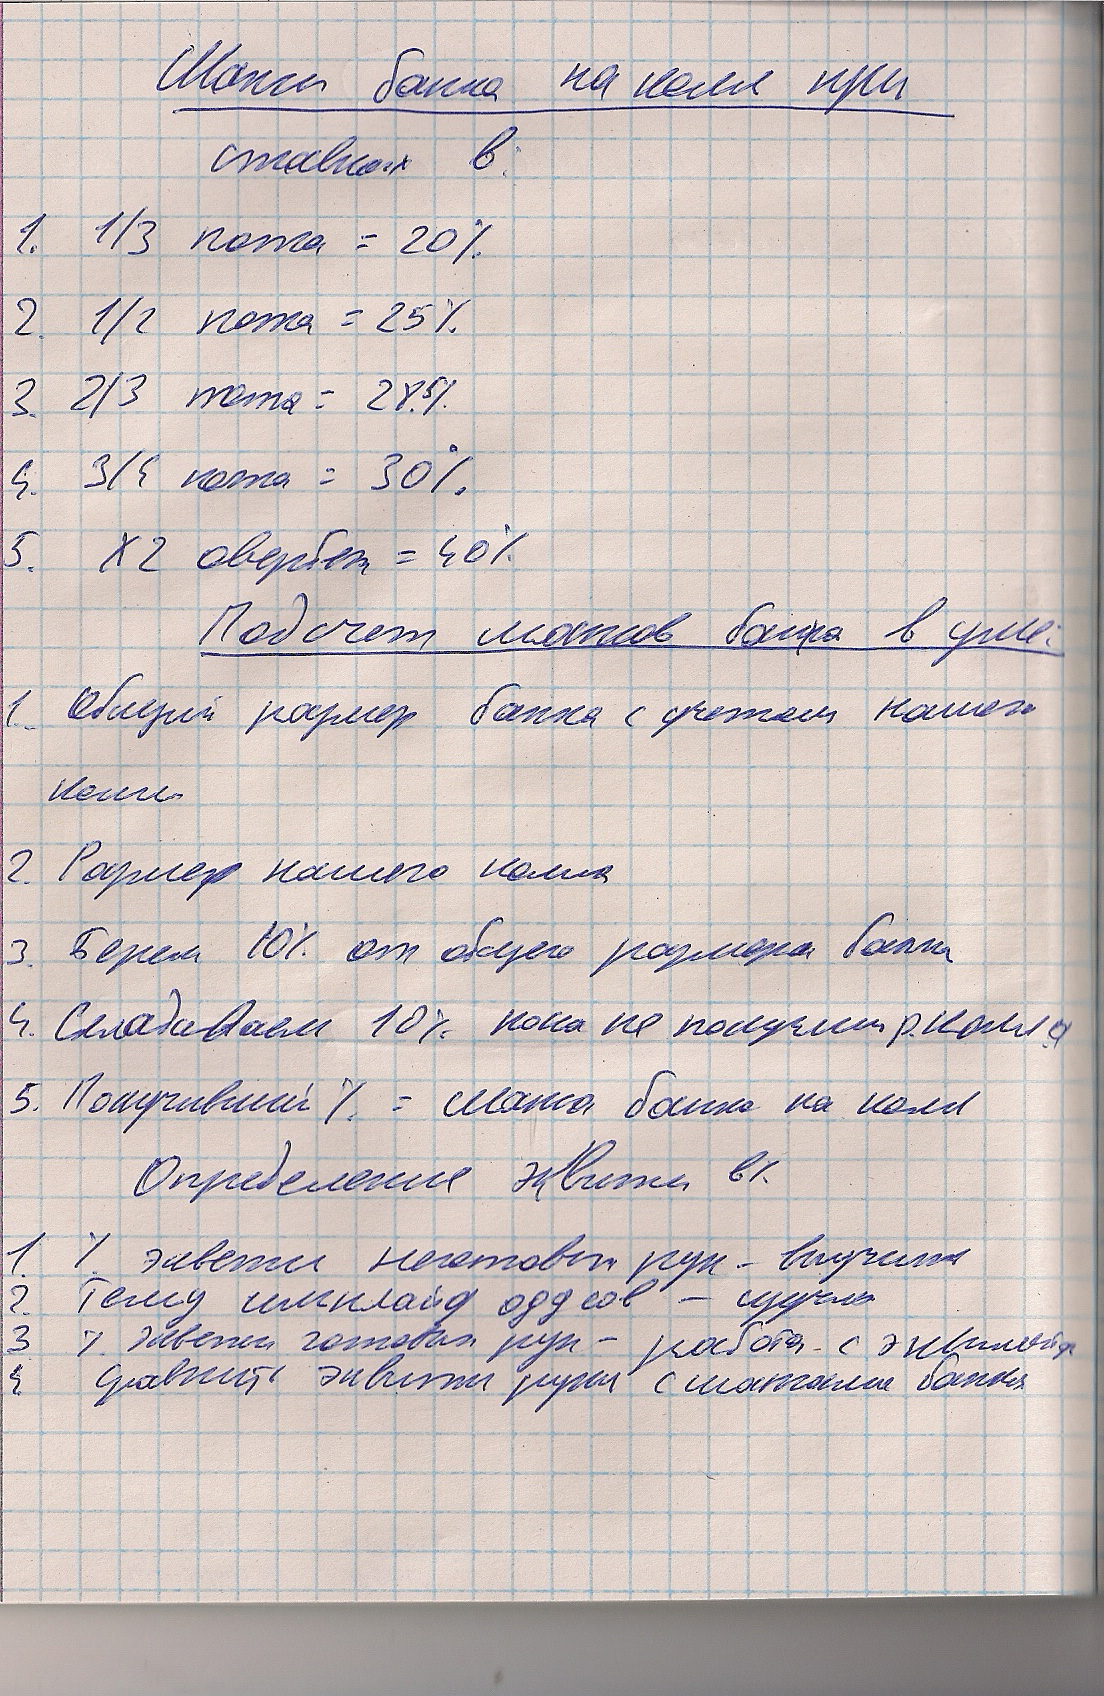 Шансы банка на колл при
ставках в:
1. 1/3 пота = 20%.
2. 1/2 пота = 25%.
3. 2/3 пота = 28.5%.
4. 3/4 пота = 30%.
5. X2 овербет = 40%.
Подсчет шансов банка в уме:
1. Общий размер банка с учетом нашего
колла
2. Размер нашего колла
3. Берем 10% от общего размера банка
4. Складываем 10%. пока не получим р. колла
5. Получивший % = шанса банка на колл
Определение эквити в %.
1. % эквети неготовых рук - выучить
2. Тему имплайд оддсов - изучить
3 % эквети готовых рук - работа с
4 Сравнить эквити руки с шансами банка